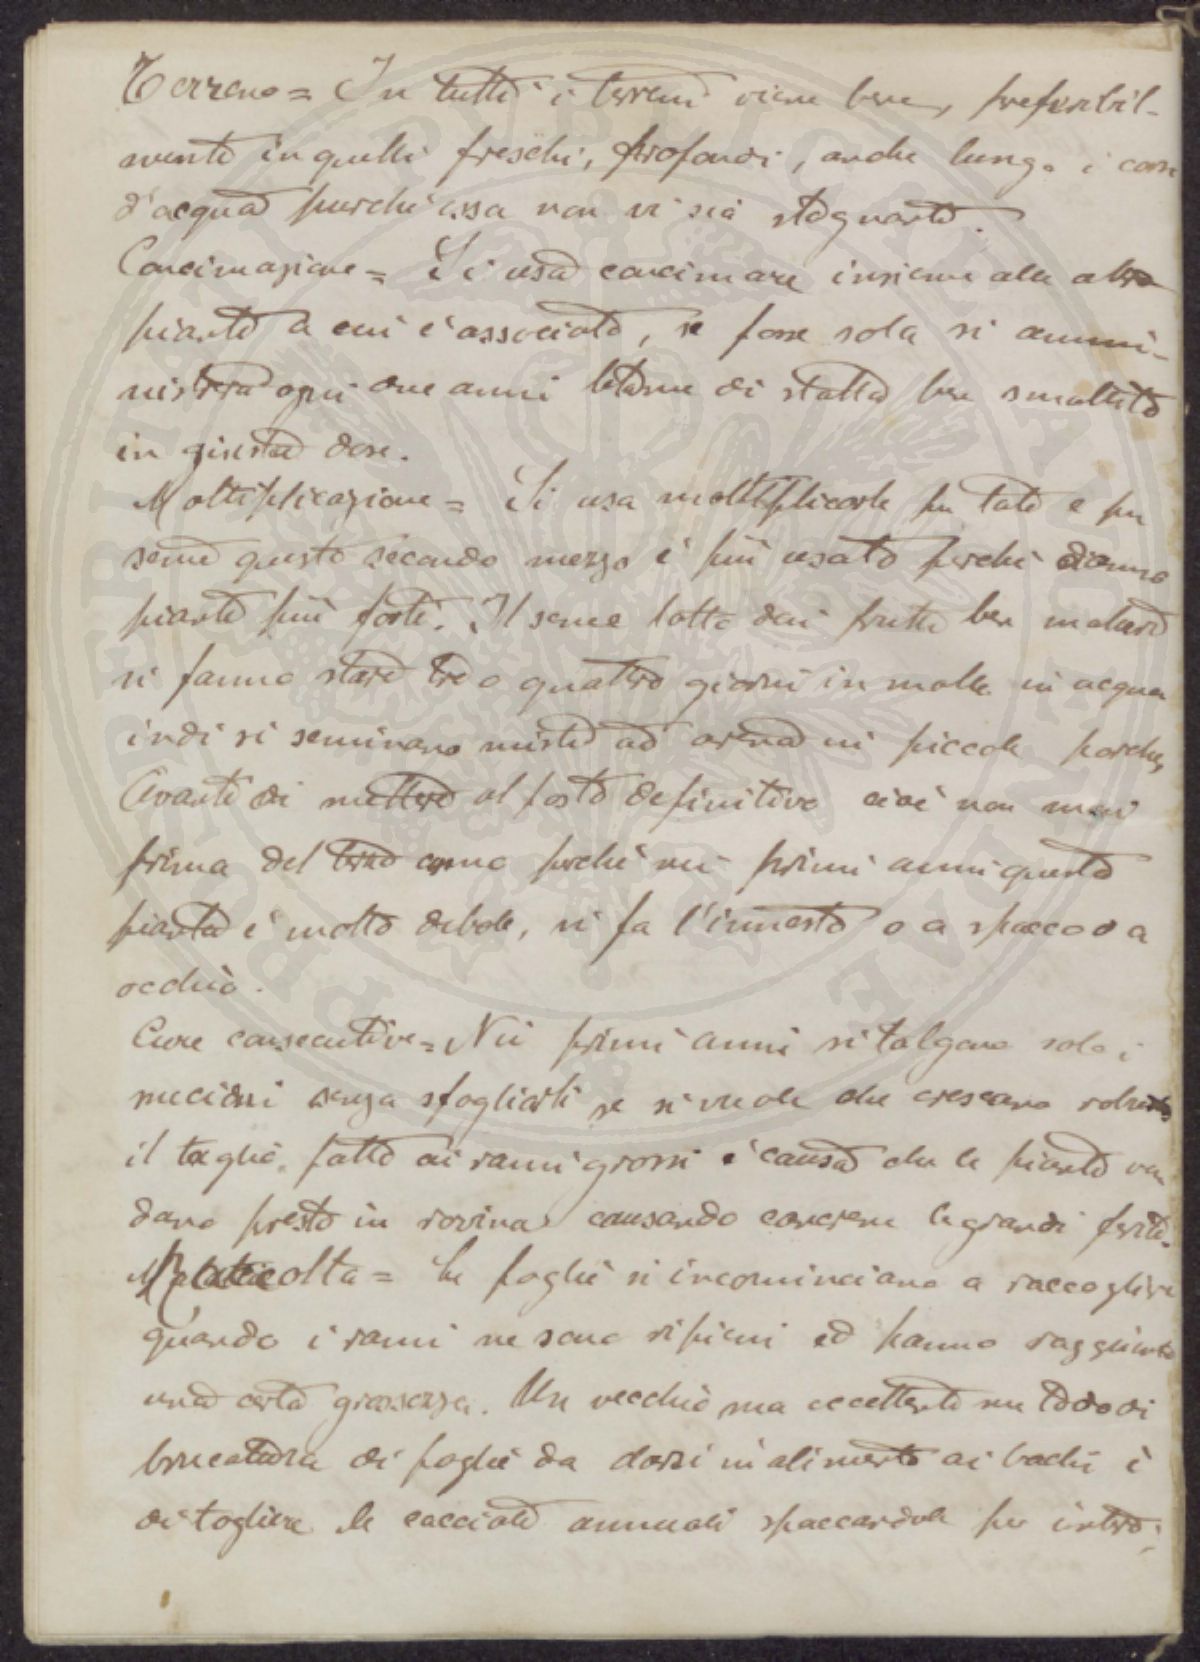 Terreno = In tutti i terreni viene bene, preferibil-
mente in quelli freschi, profondi, anche lungo i corsi
d'acqua purchè essa non vi sia stagnante.
Concimazione = Si usa concimare insieme alle altre
piante a cui è associata, se fosse sola si ammi-
nistrerà ogni due anni letame di stalla ben smaltito
in giusta dose.
Moltiplicazione = Si usa moltiplicarle per talee e per
seme questo secondo mezzo è più usato perchè dànno
piante più forti. Il seme tolto dai frutti ben maturi
si fanno stare tre o quattro giorni in molle in acqua
indi si seminano misti ad arena in piccole porche,
Avanti di mettere al posto definitivo cioè non mai
prima del terzo anno perchè nei primi anni questa
pianta è molto debole, si fa l'innesto o a spacco o a
occhio.
Cure consecutive = Nei primi anni si tolgono solo i
succioni senza sfogliarli se si vuole che crescano robusti
il taglio fatto ai rami grossi è causa che le piante va
dano presto in rovina causando carcrene le grandi ferite.
Raccolta = Le foglie si incominciano a raccogliere
quando i rami ne sono ripieni ed hanno raggiunto
una certa grossezza. Un vecchio ma eccellente metodo di
brucatura di foglie da darsi in alimento ai bachi è
di togliere le cacciate annuali spaccandole per intero;
PROSPERITATI PUBLICAE AUGENDAE